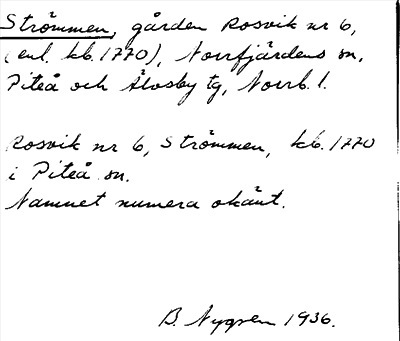 Strömmen, gården Rosvik nr 6,
(enl. kb. 1770), Norrfjärdens sn,
Piteå och Älvsby tg, Norrb. l.
Rosvik nr 6, Strömmen, kb. 1770
i Piteå sn.
Namnet numera okänt.
B. Nygren 1936.